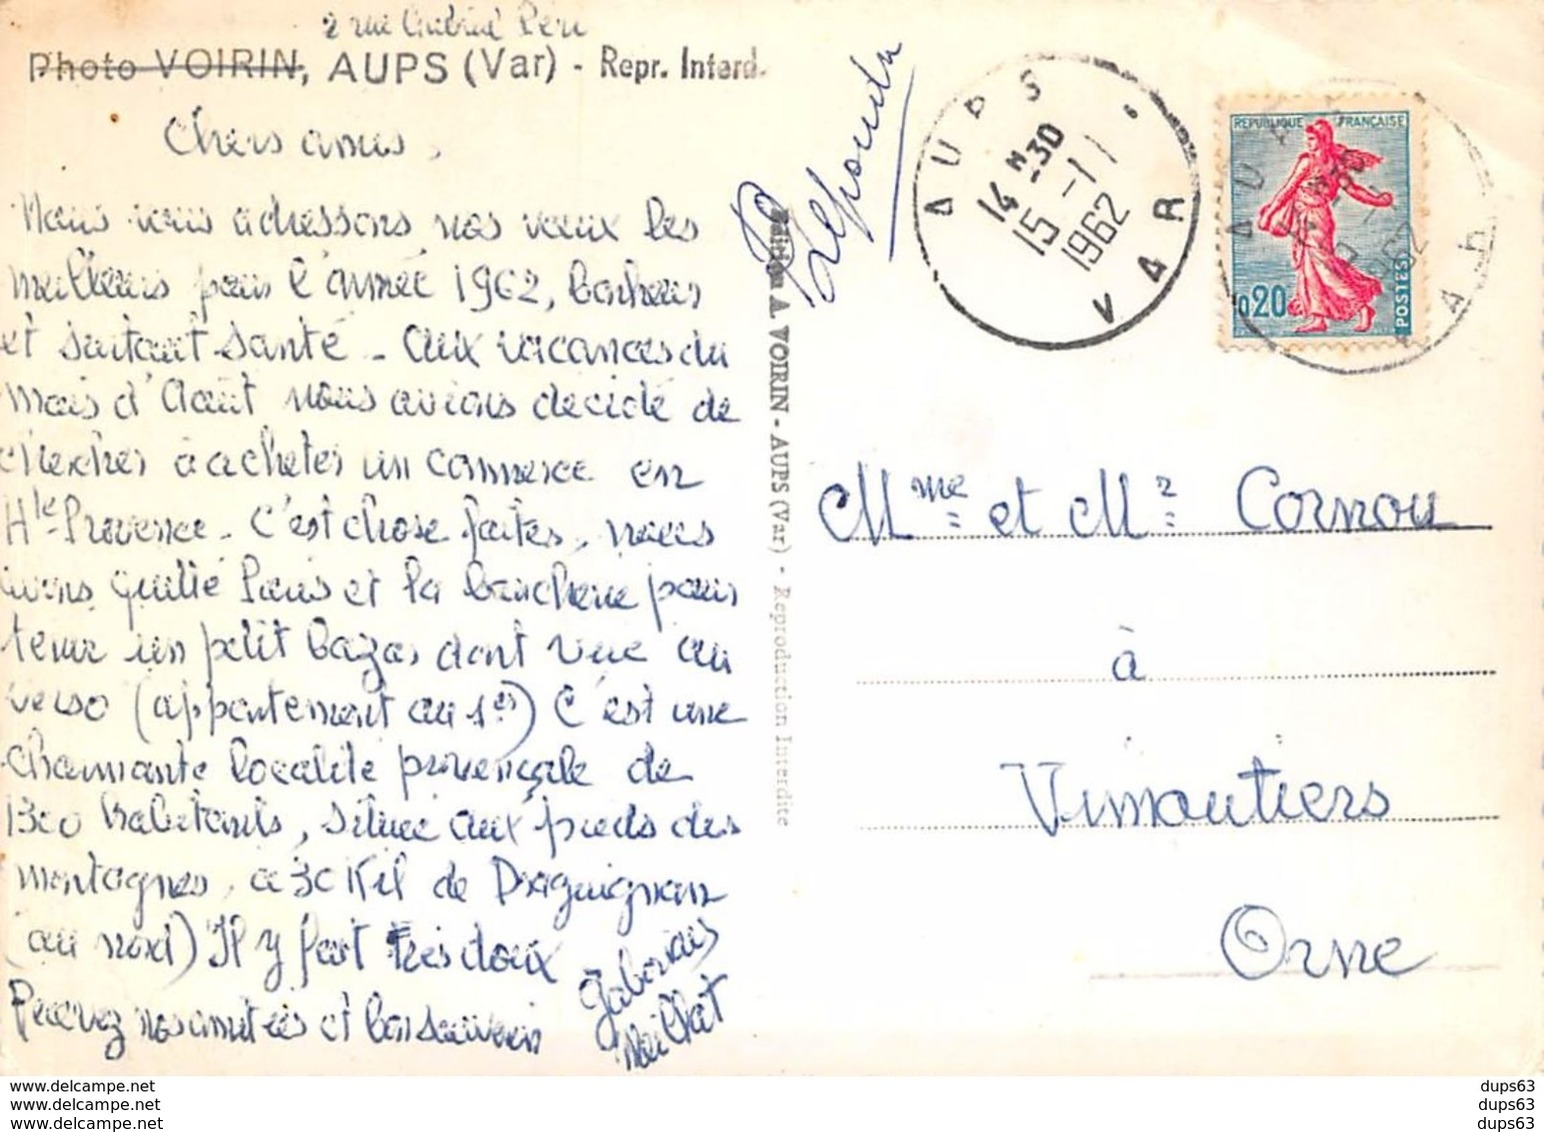 2 rue Gabriel Péri
Photo VOIRIN, AUPS (Var) - Repr. Interd.
Chers amis,
Nous vous adressons nos vœux les
meilleurs pour l'année 1962, bonheur
et surtout santé - Aux vacances du
mois d'Août nous avions décidé de
chercher à acheter un commerce en
Hte Provence - C'est chose faites, nous
avons quitté Paris et la boucherie pour
tenir un petit bazar dont vue au
verso (appartement au 1er) C'est une
charmante localité provençale de
1300 habitants, située aux pieds des
montagnes, à 30 Kil de Draguignan
(au nord) Il y fait très doux
Recevez nos amitiés et bon souvenir
Répondu
Edition A. VOIRIN - AUPS (Var) - Reproduction Interdite
AUPS
14 H -30
15 -1
1962
VAR
REPUBLIQUE FRANÇAISE
0,20
POSTES
AUPS
1962
VAR
Mme et Mr Cornou
à
Vimoutiers
Orne
www.delcampe.net
www.delcampe.net
www.delcampe.net
dups63
dups63
dups63